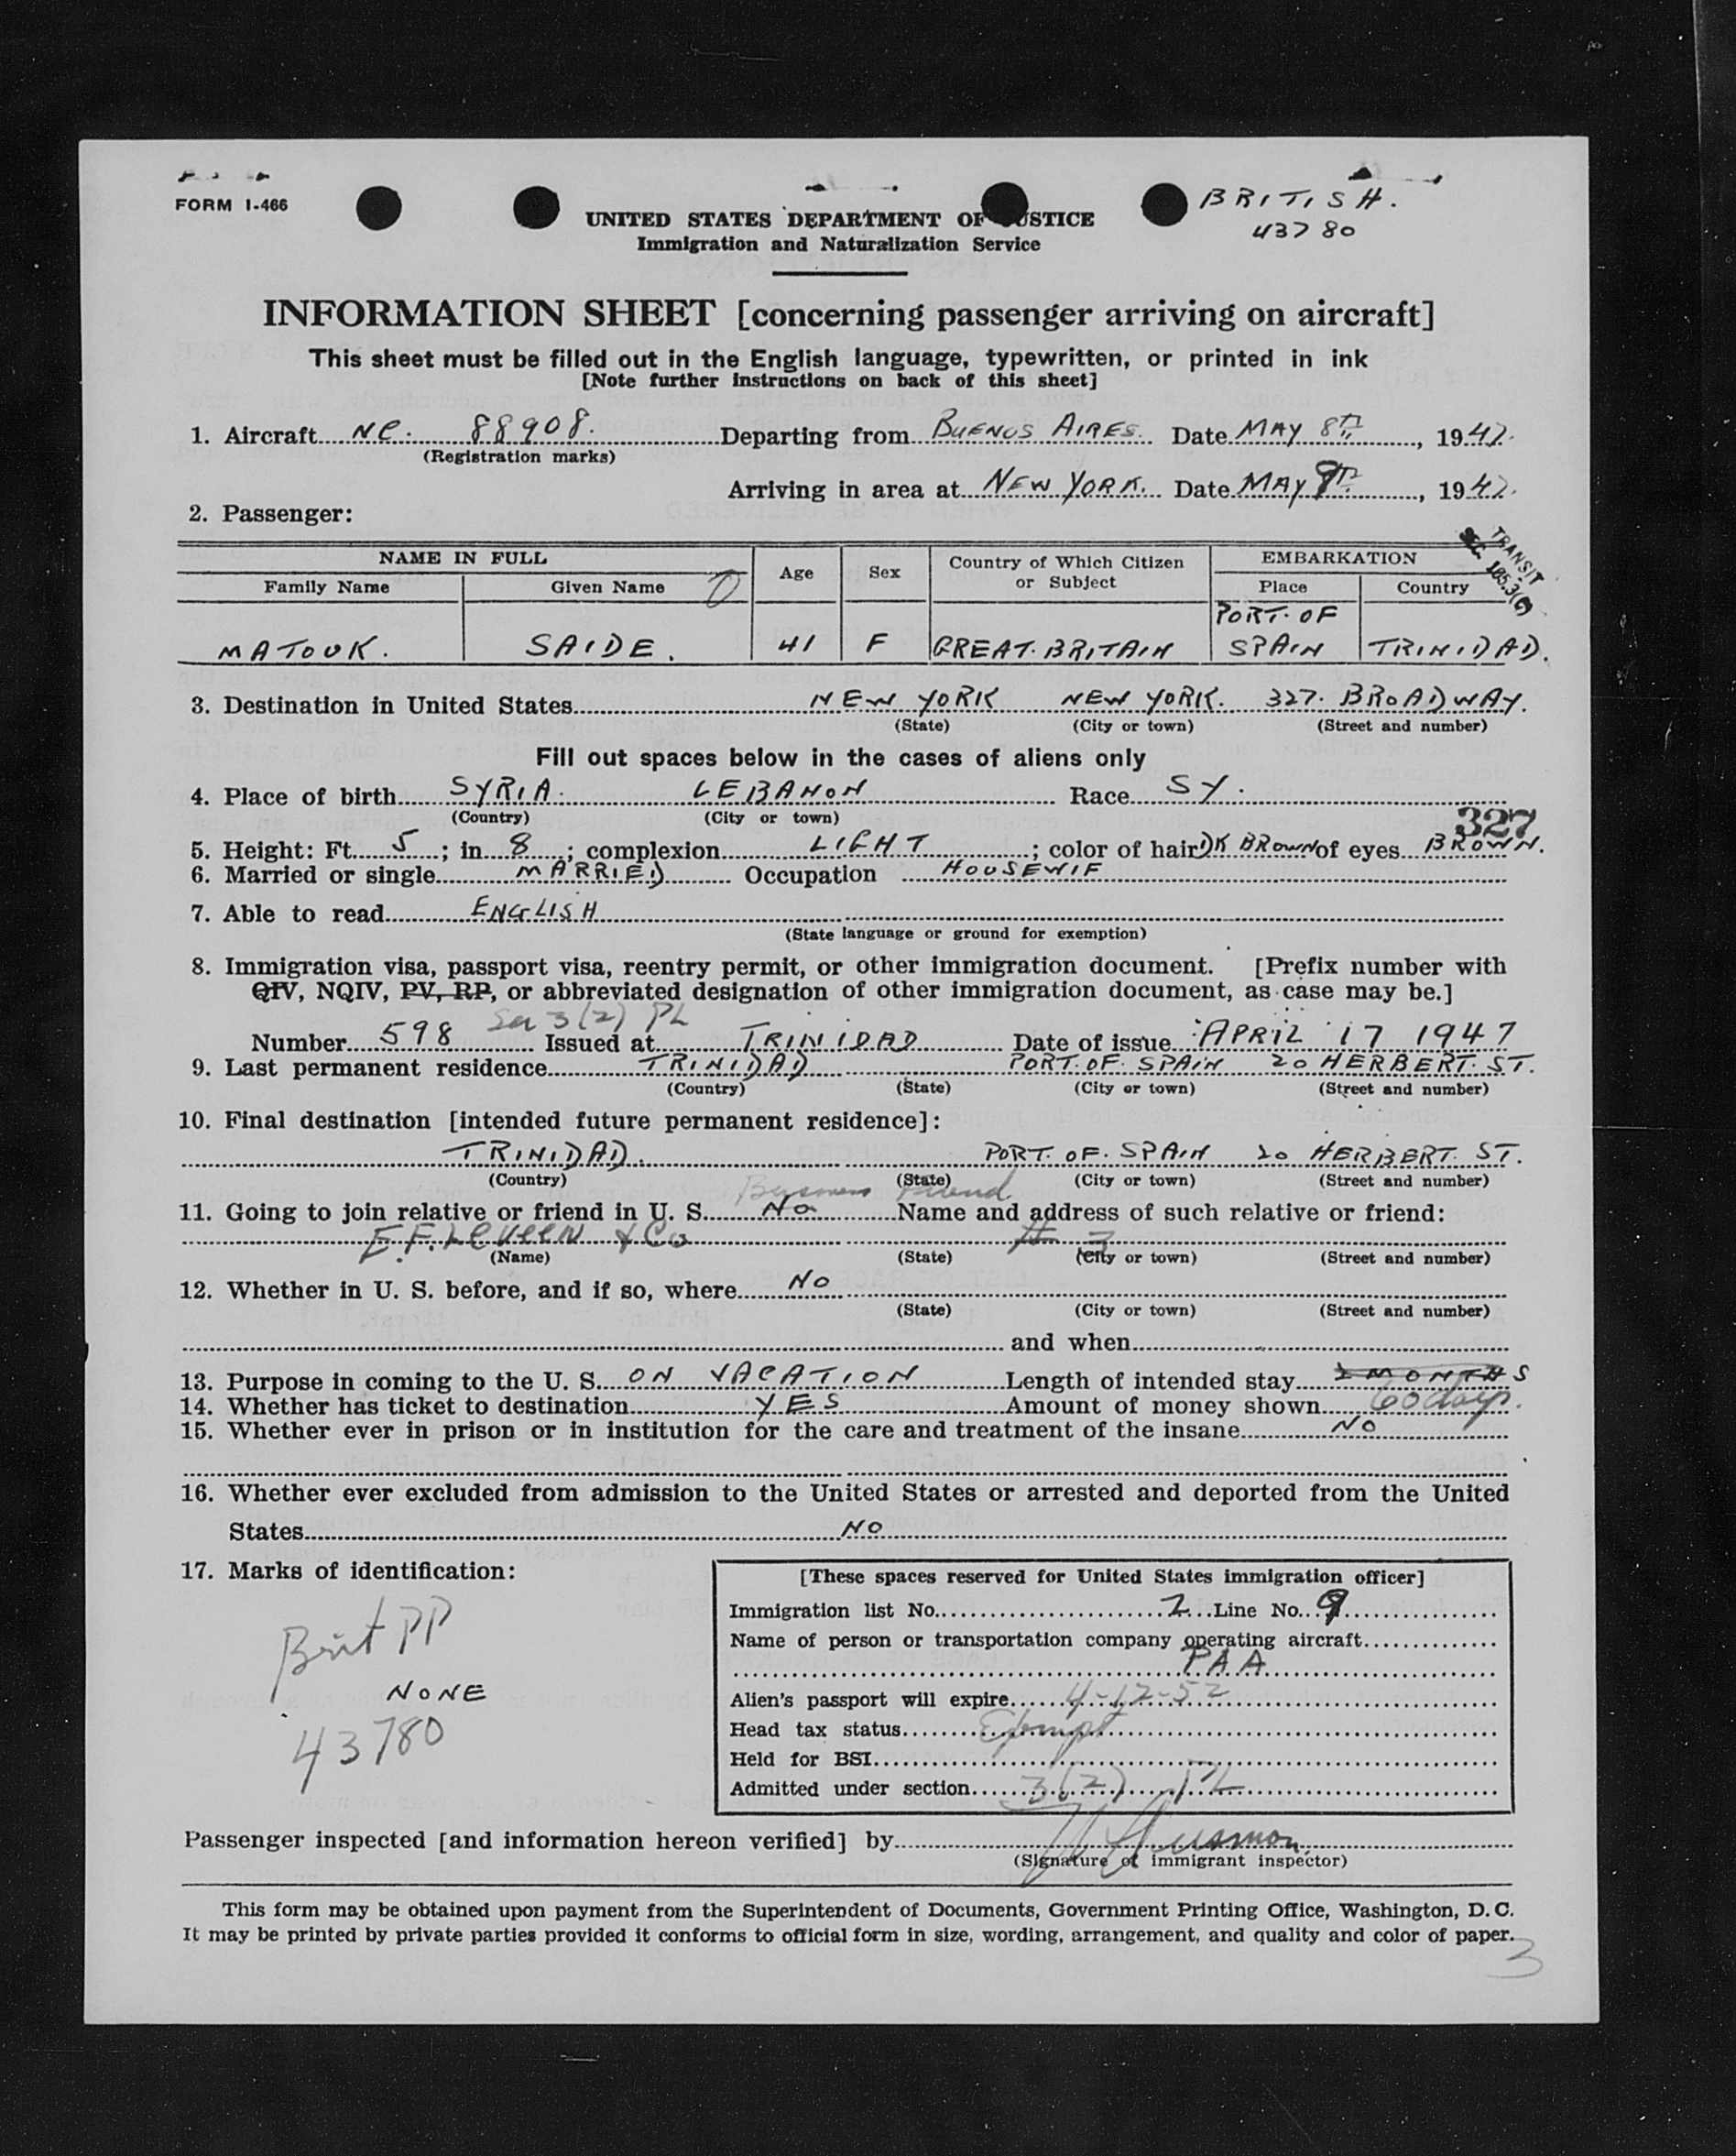 FORM I-466
BRITISH.
43780
UNITED STATES DEPARTMENT OF JUSTICE
Immigration and Naturalization Service
INFORMATION SHEET [concerning passenger arriving on aircraft]
This sheet must be filled out in the English language, typewritten, or printed in ink
[Note further instructions on back of this sheet]
1. Aircraft NC. 88908. Departing from BUENOS AIRES. Date MAY 8TH, 1947.
(Registration marks)
Arriving in area at NEW YORK. Date MAY 9TH, 1947.
2. Passenger:
TRANSIT
SEC. 105.3(C)
NAME IN FULL Age Sex Country of Which Citizen or Subject EMBARKATION
Family Name Given Name Place Country
MATOUK. SAIDE. 41 F GREAT. BRITAIN PORT. OF SPAIN TRINIDAD.
3. Destination in United States NEW YORK NEW YORK. 327. BROADWAY.
(State) (City or town) (Street and number)
Fill out spaces below in the cases of aliens only
4. Place of birth SYRIA. LEBANON Race SY.
(Country) (City or town)
327
5. Height: Ft. 5; in. 8; complexion LIGHT; color of hair DK BROWN of eyes BROWN.
6. Married or single MARRIED Occupation HOUSEWIF
7. Able to read ENGLISH
(State language or ground for exemption)
8. Immigration visa, passport visa, reentry permit, or other immigration document. [Prefix number with
QIV, NQIV, PV, RP, or abbreviated designation of other immigration document, as case may be.]
3(2) PL
Number 598 Issued at TRINIDAD Date of issue APRIL 17 1947
9. Last permanent residence TRINIDAD PORT. OF. SPAIN 20 HERBERT. ST.
(Country) (State) (City or town) (Street and number)
10. Final destination [intended future permanent residence]:
TRINIDAD. PORT. OF. SPAIN 20 HERBERT. ST.
(Country) (State) (City or town) (Street and number)
Business Friend
11. Going to join relative or friend in U. S. No Name and address of such relative or friend:
E.F. LEVEEN & Co # 3
(Name) (State) (City or town) (Street and number)
12. Whether in U. S. before, and if so, where NO
(State) (City or town) (Street and number)
and when
13. Purpose in coming to the U. S. ON VACATION Length of intended stay 2 MONTHS
14. Whether has ticket to destination YES Amount of money shown 60 days.
15. Whether ever in prison or in institution for the care and treatment of the insane NO
16. Whether ever excluded from admission to the United States or arrested and deported from the United
States NO
17. Marks of identification:
Brit PP
NONE
43780
[These spaces reserved for United States immigration officer]
Immigration list No. 2 Line No. 9
Name of person or transportation company operating aircraft
PAA
Alien's passport will expire 4-12-52
Head tax status Exempt
Held for BSI
Admitted under section 3(2) PL
Passenger inspected [and information hereon verified] by
(Signature of immigrant inspector)
This form may be obtained upon payment from the Superintendent of Documents, Government Printing Office, Washington, D. C.
It may be printed by private parties provided it conforms to official form in size, wording, arrangement, and quality and color of paper.
3